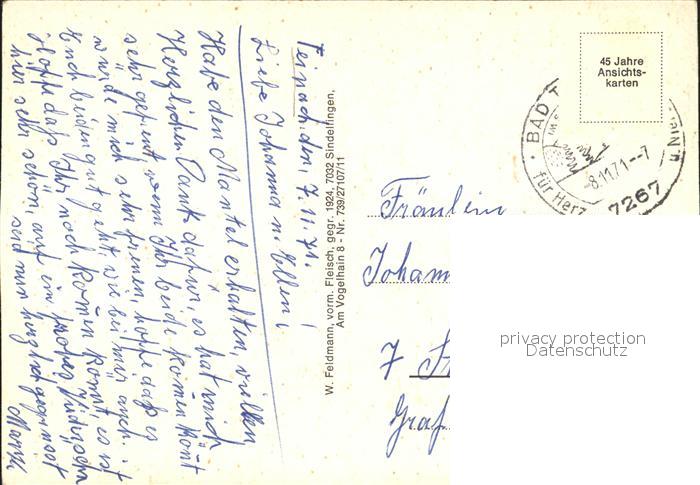 Teinach, den, 7.11.71.
Liebe Johanna u. Ellen!
Habe den Mantel erhalten, vielen
Herzlichen Dank dafür, es hat mich
sehr gefreut wenn Ihr beide komen könt
würde mich sehr freuen, hoffe daß es
Euch beiden gut geht, wie bei mir auch.
hoffe daß Ihr noch komen könnt, es ist
hier sehr schön, auf ein frohes
seid nun herzlich gegrüsst
W. Feldmann, vorm. Fleisch, gegr. 1924, 7032 Sindelfingen,
Am Vogelhain 8 - Nr. 739/27107/11
45 Jahre
Ansichts-
karten
BAD T
-8.11.71--7
für Herz
7267
Fräulein
Johan
7 St
Graf
privacy protection
Datenschutz